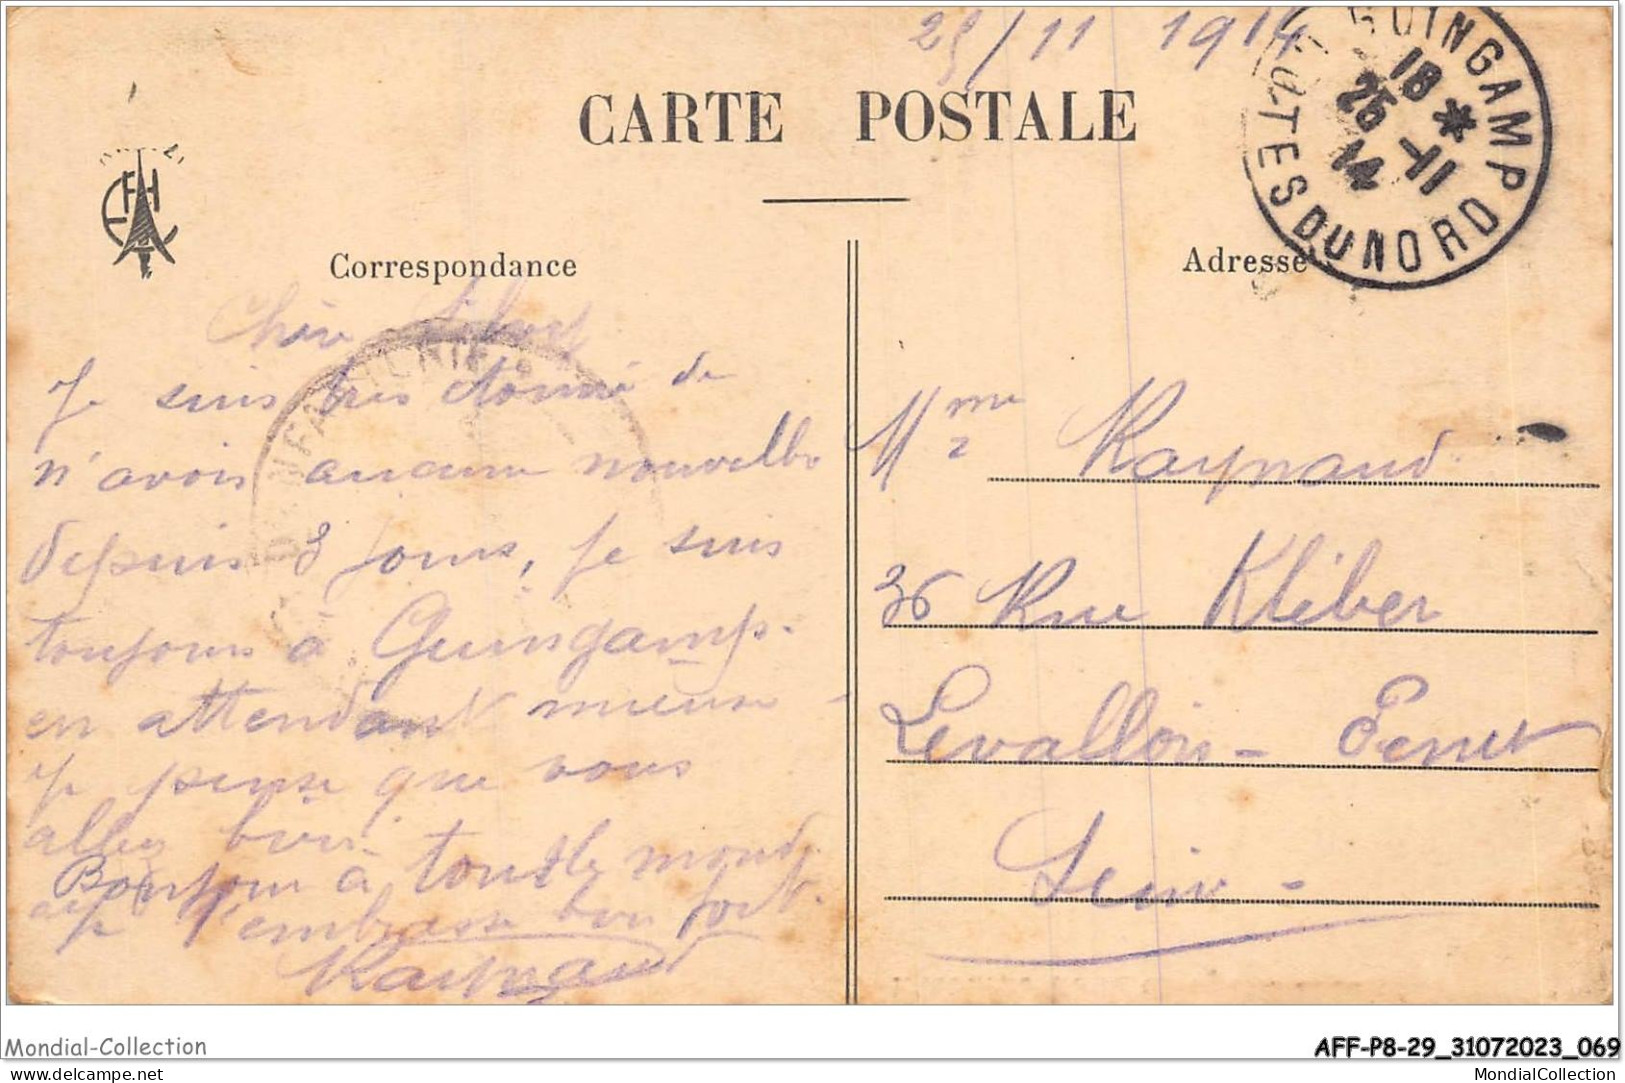 25/11 1914
CARTE POSTALE
GUINGAMP
18 *
25 -11
14
COTES DU NORD
Correspondance
Adresse
Je suis très étonné de
n'avoir aucune nouvelle
depuis 8 jours, je suis
toujours à Guingamp.
en attendant mieux -
je pense que vous
allez bien.
Bonjour à tout le monde
je t'embrasse bien fort.
Raynaud
Mme Raynaud
36 Rue Kléber
Levallois - Perret
Seine -
Mondial-Collection
AFF-P8-29_31072023_069
delcampe.net
MondialCollection